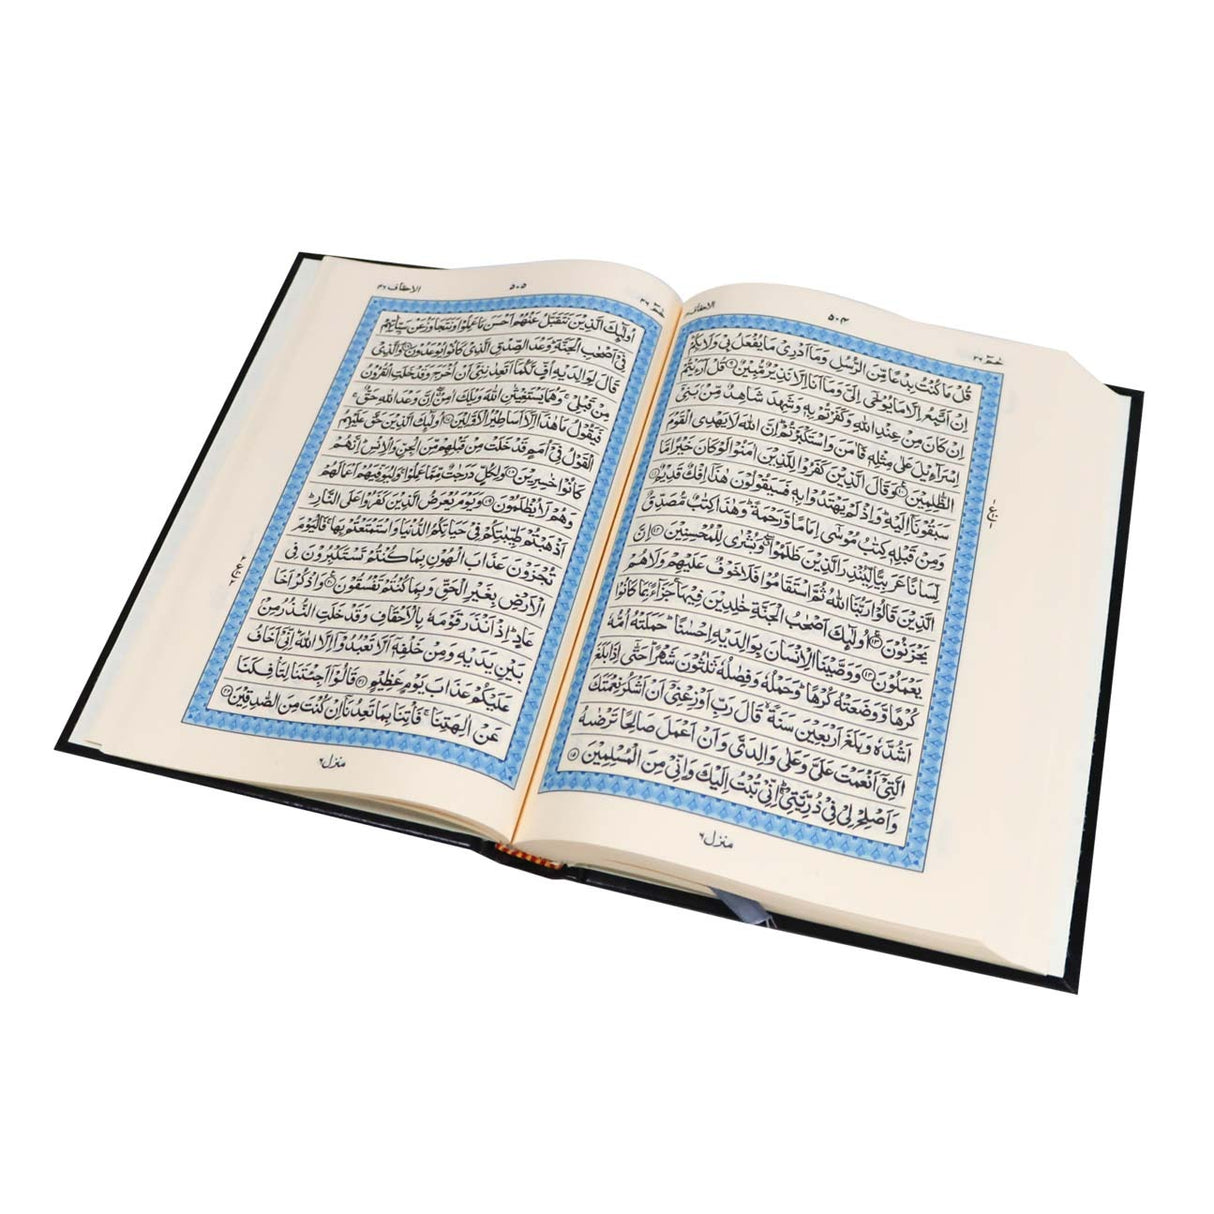 حٰم ٢٦
٥٠٤
الاحقاف ٤٦
قُلْ مَا كُنْتُ بِدْعًا مِّنَ الرُّسُلِ وَمَآ اَدْرِيْ مَا يُفْعَلُ بِيْ وَلَا بِكُمْ ؕ
اِنْ اَتَّبِعُ اِلَّا مَا يُوْحٰٓى اِلَيَّ وَمَآ اَنَا اِلَّا نَذِيْرٌ مُّبِيْنٌ ٩ قُلْ اَرَءَيْتُمْ
اِنْ كَانَ مِنْ عِنْدِ اللّٰهِ وَكَفَرْتُمْ بِهٖ وَشَهِدَ شَاهِدٌ مِّنْۢ بَنِيْٓ
اِسْرَآءِيْلَ عَلٰى مِثْلِهٖ فَاٰمَنَ وَاسْتَكْبَرْتُمْ ؕ اِنَّ اللّٰهَ لَا يَهْدِى الْقَوْمَ
الظّٰلِمِيْنَ ١٠ وَقَالَ الَّذِيْنَ كَفَرُوْا لِلَّذِيْنَ اٰمَنُوْا لَوْ كَانَ خَيْرًا مَّا
سَبَقُوْنَآ اِلَيْهِ ؕ وَاِذْ لَمْ يَهْتَدُوْا بِهٖ فَسَيَقُوْلُوْنَ هٰذَآ اِفْكٌ قَدِيْمٌ ١١
وَمِنْ قَبْلِهٖ كِتٰبُ مُوْسٰٓى اِمَامًا وَّرَحْمَةً ؕ وَهٰذَا كِتٰبٌ مُّصَدِّقٌ
لِّسَانًا عَرَبِيًّا لِّيُنْذِرَ الَّذِيْنَ ظَلَمُوْا ۖ وَبُشْرٰى لِلْمُحْسِنِيْنَ ١٢ اِنَّ
الَّذِيْنَ قَالُوْا رَبُّنَا اللّٰهُ ثُمَّ اسْتَقَامُوْا فَلَا خَوْفٌ عَلَيْهِمْ وَلَا هُمْ
يَحْزَنُوْنَ ١٣ اُولٰٓئِكَ اَصْحٰبُ الْجَنَّةِ خٰلِدِيْنَ فِيْهَا ۚ جَزَآءًۢ بِمَا كَانُوْا
يَعْمَلُوْنَ ١٤ وَوَصَّيْنَا الْاِنْسَانَ بِوَالِدَيْهِ اِحْسٰنًا ؕ حَمَلَتْهُ اُمُّهٗ
كُرْهًا وَّوَضَعَتْهُ كُرْهًا ؕ وَحَمْلُهٗ وَفِصٰلُهٗ ثَلٰثُوْنَ شَهْرًا ؕ حَتّٰىٓ اِذَا بَلَغَ
اَشُدَّهٗ وَبَلَغَ اَرْبَعِيْنَ سَنَةً ۙ قَالَ رَبِّ اَوْزِعْنِيْٓ اَنْ اَشْكُرَ نِعْمَتَكَ
الَّتِيْٓ اَنْعَمْتَ عَلَيَّ وَعَلٰى وَالِدَيَّ وَاَنْ اَعْمَلَ صَالِحًا تَرْضٰهُ
وَاَصْلِحْ لِيْ فِيْ ذُرِّيَّتِيْ ؕ اِنِّيْ تُبْتُ اِلَيْكَ وَاِنِّيْ مِنَ الْمُسْلِمِيْنَ ١٥
منزل ٦
حٰم ٢٦
٥٠٥
الاحقاف ٤٦
اُولٰٓئِكَ الَّذِيْنَ نَتَقَبَّلُ عَنْهُمْ اَحْسَنَ مَا عَمِلُوْا وَنَتَجَاوَزُ عَنْ سَيِّاٰتِهِمْ
فِيْٓ اَصْحٰبِ الْجَنَّةِ ؕ وَعْدَ الصِّدْقِ الَّذِيْ كَانُوْا يُوْعَدُوْنَ ١٦ وَالَّذِيْ
قَالَ لِوَالِدَيْهِ اُفٍّ لَّكُمَآ اَتَعِدٰنِنِيْٓ اَنْ اُخْرَجَ وَقَدْ خَلَتِ الْقُرُوْنُ
مِنْ قَبْلِيْ ۚ وَهُمَا يَسْتَغِيْثٰنِ اللّٰهَ وَيْلَكَ اٰمِنْ ۖ اِنَّ وَعْدَ اللّٰهِ حَقٌّ ۚ
فَيَقُوْلُ مَا هٰذَآ اِلَّآ اَسَاطِيْرُ الْاَوَّلِيْنَ ١٧ اُولٰٓئِكَ الَّذِيْنَ حَقَّ عَلَيْهِمُ
الْقَوْلُ فِيْٓ اُمَمٍ قَدْ خَلَتْ مِنْ قَبْلِهِمْ مِّنَ الْجِنِّ وَالْاِنْسِ ؕ اِنَّهُمْ
كَانُوْا خٰسِرِيْنَ ١٨ وَلِكُلٍّ دَرَجٰتٌ مِّمَّا عَمِلُوْا ۚ وَلِيُوَفِّيَهُمْ اَعْمَالَهُمْ
وَهُمْ لَا يُظْلَمُوْنَ ١٩ وَيَوْمَ يُعْرَضُ الَّذِيْنَ كَفَرُوْا عَلَى النَّارِ ؕ
اَذْهَبْتُمْ طَيِّبٰتِكُمْ فِيْ حَيَاتِكُمُ الدُّنْيَا وَاسْتَمْتَعْتُمْ بِهَا ۚ فَالْيَوْمَ
تُجْزَوْنَ عَذَابَ الْهُوْنِ بِمَا كُنْتُمْ تَسْتَكْبِرُوْنَ فِى
الْاَرْضِ بِغَيْرِ الْحَقِّ وَبِمَا كُنْتُمْ تَفْسُقُوْنَ ٢٠ وَاذْكُرْ اَخَا
عَادٍ ؕ اِذْ اَنْذَرَ قَوْمَهٗ بِالْاَحْقَافِ وَقَدْ خَلَتِ النُّذُرُ مِنْۢ
بَيْنِ يَدَيْهِ وَمِنْ خَلْفِهٖٓ اَلَّا تَعْبُدُوْٓا اِلَّا اللّٰهَ ؕ اِنِّيْٓ اَخَافُ
عَلَيْكُمْ عَذَابَ يَوْمٍ عَظِيْمٍ ٢١ قَالُوْٓا اَجِئْتَنَا لِتَاْفِكَنَا
عَنْ اٰلِهَتِنَا ۚ فَاْتِنَا بِمَا تَعِدُنَآ اِنْ كُنْتَ مِنَ الصّٰدِقِيْنَ ٢٢
منزل ٦